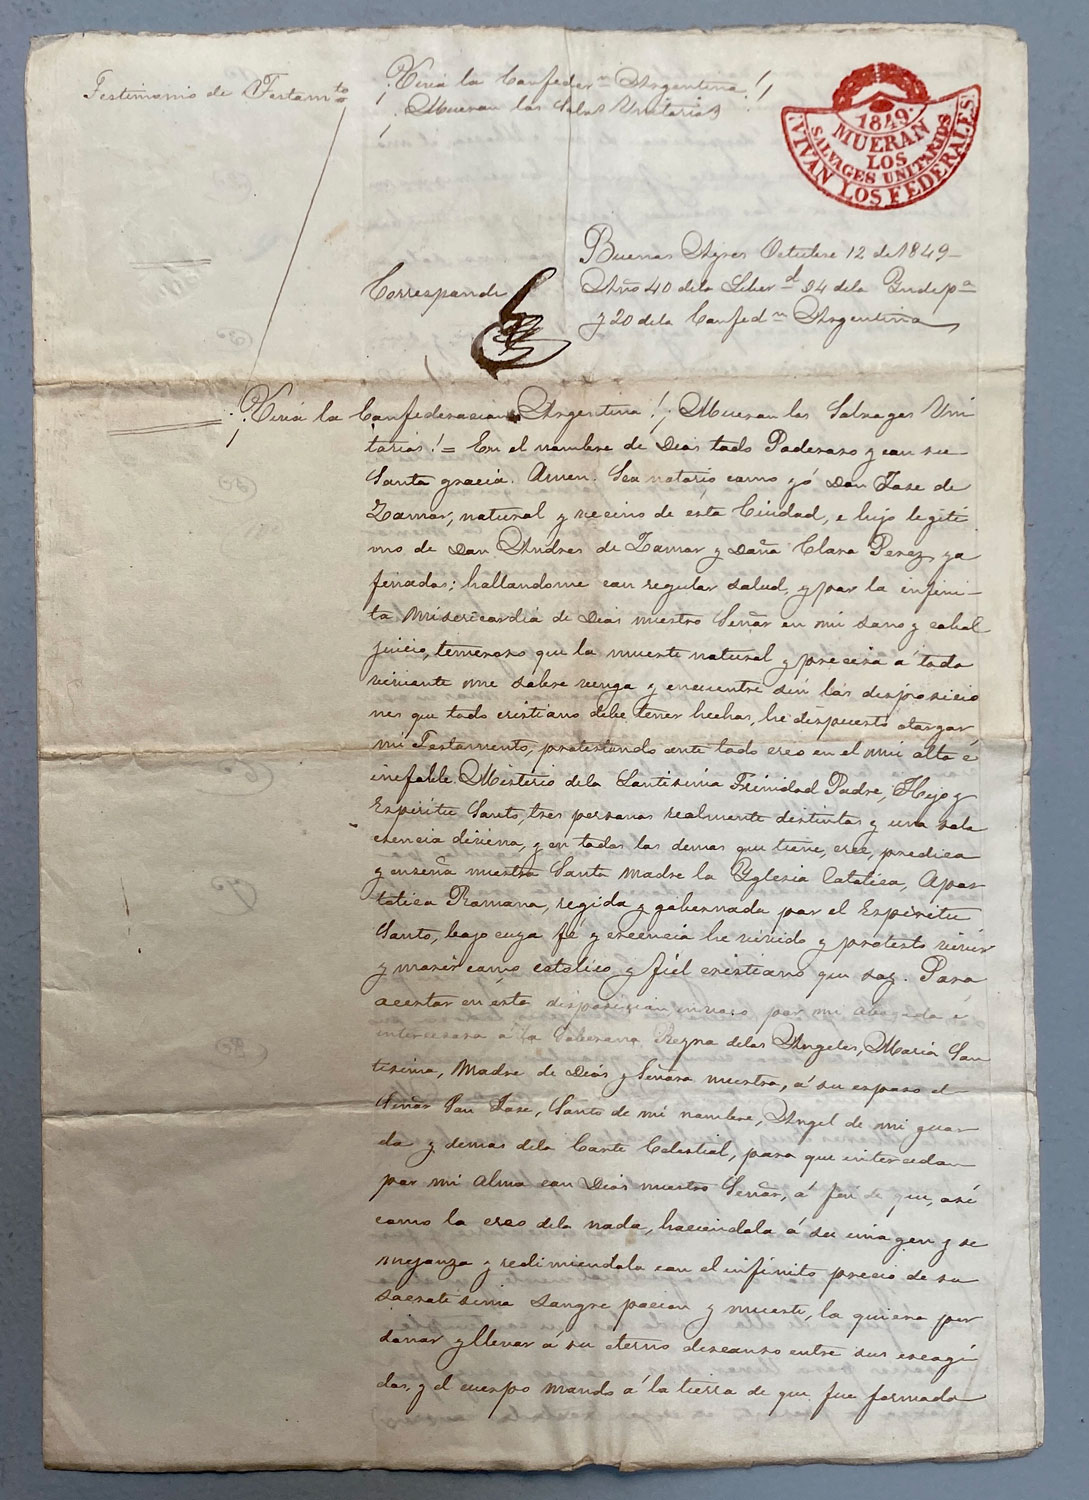 Testimonio de Testam.to
¡Viva la Confeder.n Argentina!
¡Mueran los Salv.s Unitarios!
1849.
MUERAN
LOS
SALVAGES UNITARIOS
¡VIVAN LOS FEDERALES!
Buenos Ayres Octubre 12 de 1849–
Año 40 de la Liber.d 34 de la Yndep.a
y 20 de la Confed.n Argentina
Corresponde
¡Viva la Confederacion Argentina! ¡Mueran los Salvages Uni
tarios! = En el nombre de Dios todo Poderoso y con su
Santa gracia. Amen. Sea notorio como yó Don Jose de
Zamor, natural y vecino de esta Ciudad, e hijo legiti
mo de Don Andres de Zamor y Doña Clara Perez, ya
finados; hallandome con regular salud, y por la infini–
ta Misericordia de Dios nuestro Señor en mi sano y cabal
juicio, temeroso que la muerte natural y precisa á todo
viviente me sobre venga y encuentre sin las disposicio
nes que todo cristiano debe tener hechas, he dispuesto otorgar
mi Testamento, protestando ante todo creo en el mui alto é
inefable Misterio de la Santisima Trinidad Padre, Hijo y
Espiritu Santo, tres personas realmente distintas y una sola
esencia divina, y en todos los demas que tiene, cree, predica
y enseña nuestra Santa Madre la Yglesia Catolica, Apos
tolica Romana, regida y gobernada por el Espiritu
Santo, bajo cuya fé y creencia he vivido y protesto vivir
y morir como catolico y fiel cristiano que soy. Para
acertar en esta disposicion invoco por mi abogada é
intercesora á la Soberana Reyna de los Angeles, Maria San
tisima, Madre de Dios y Señora nuestra, á su esposo el
Señor San Jose, Santo de mi nombre, Angel de mi guar
da y demas de la Corte Celestial, para que intercedan
por mi Alma con Dios nuestro Señor, á fin de que, asi
como la creo de la nada, haciendola á su imagen y se
mejanza y redimiendola con el infinito precio de su
sacratisima sangre pacion y muerte, la quiera per
donar y llevar á su eterno descanso entre sus escogi
dos, y el cuerpo mando á la tierra de que fue formado